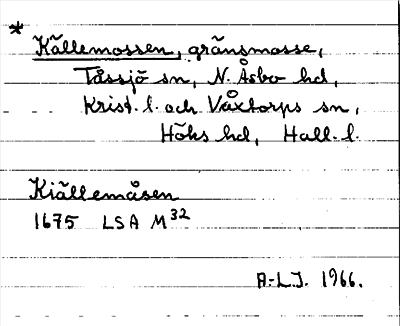 *
Källemossen, gränsmosse,
Tåssjö sn, N. Åsbo hd,
Krist. l. och Våxtorps sn,
Höks hd, Hall. l.
Kiällemåsen
1675 LSA M32
A-L.J. 1966.